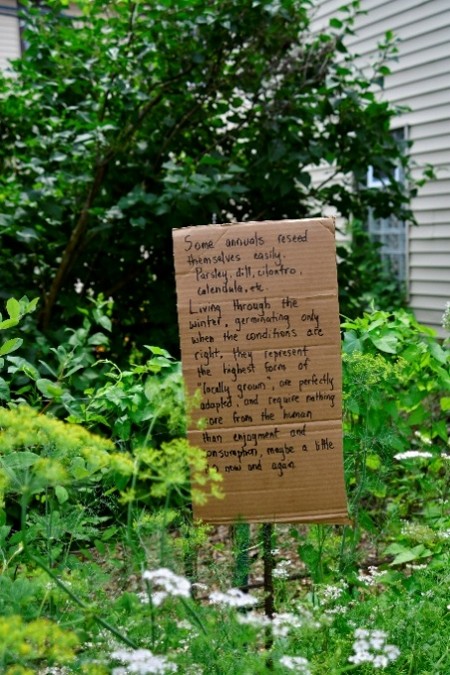 Some annuals reseed
themselves easily.
Parsley, dill, cilantro,
calendula, etc.
Living through the
winter, germinating only
when the conditions are
right, they represent
the highest form of
"locally grown", are perfectly
adapted, and require nothing
ore from the human
than enjoyment and
onsumption, maybe a little
now and again.